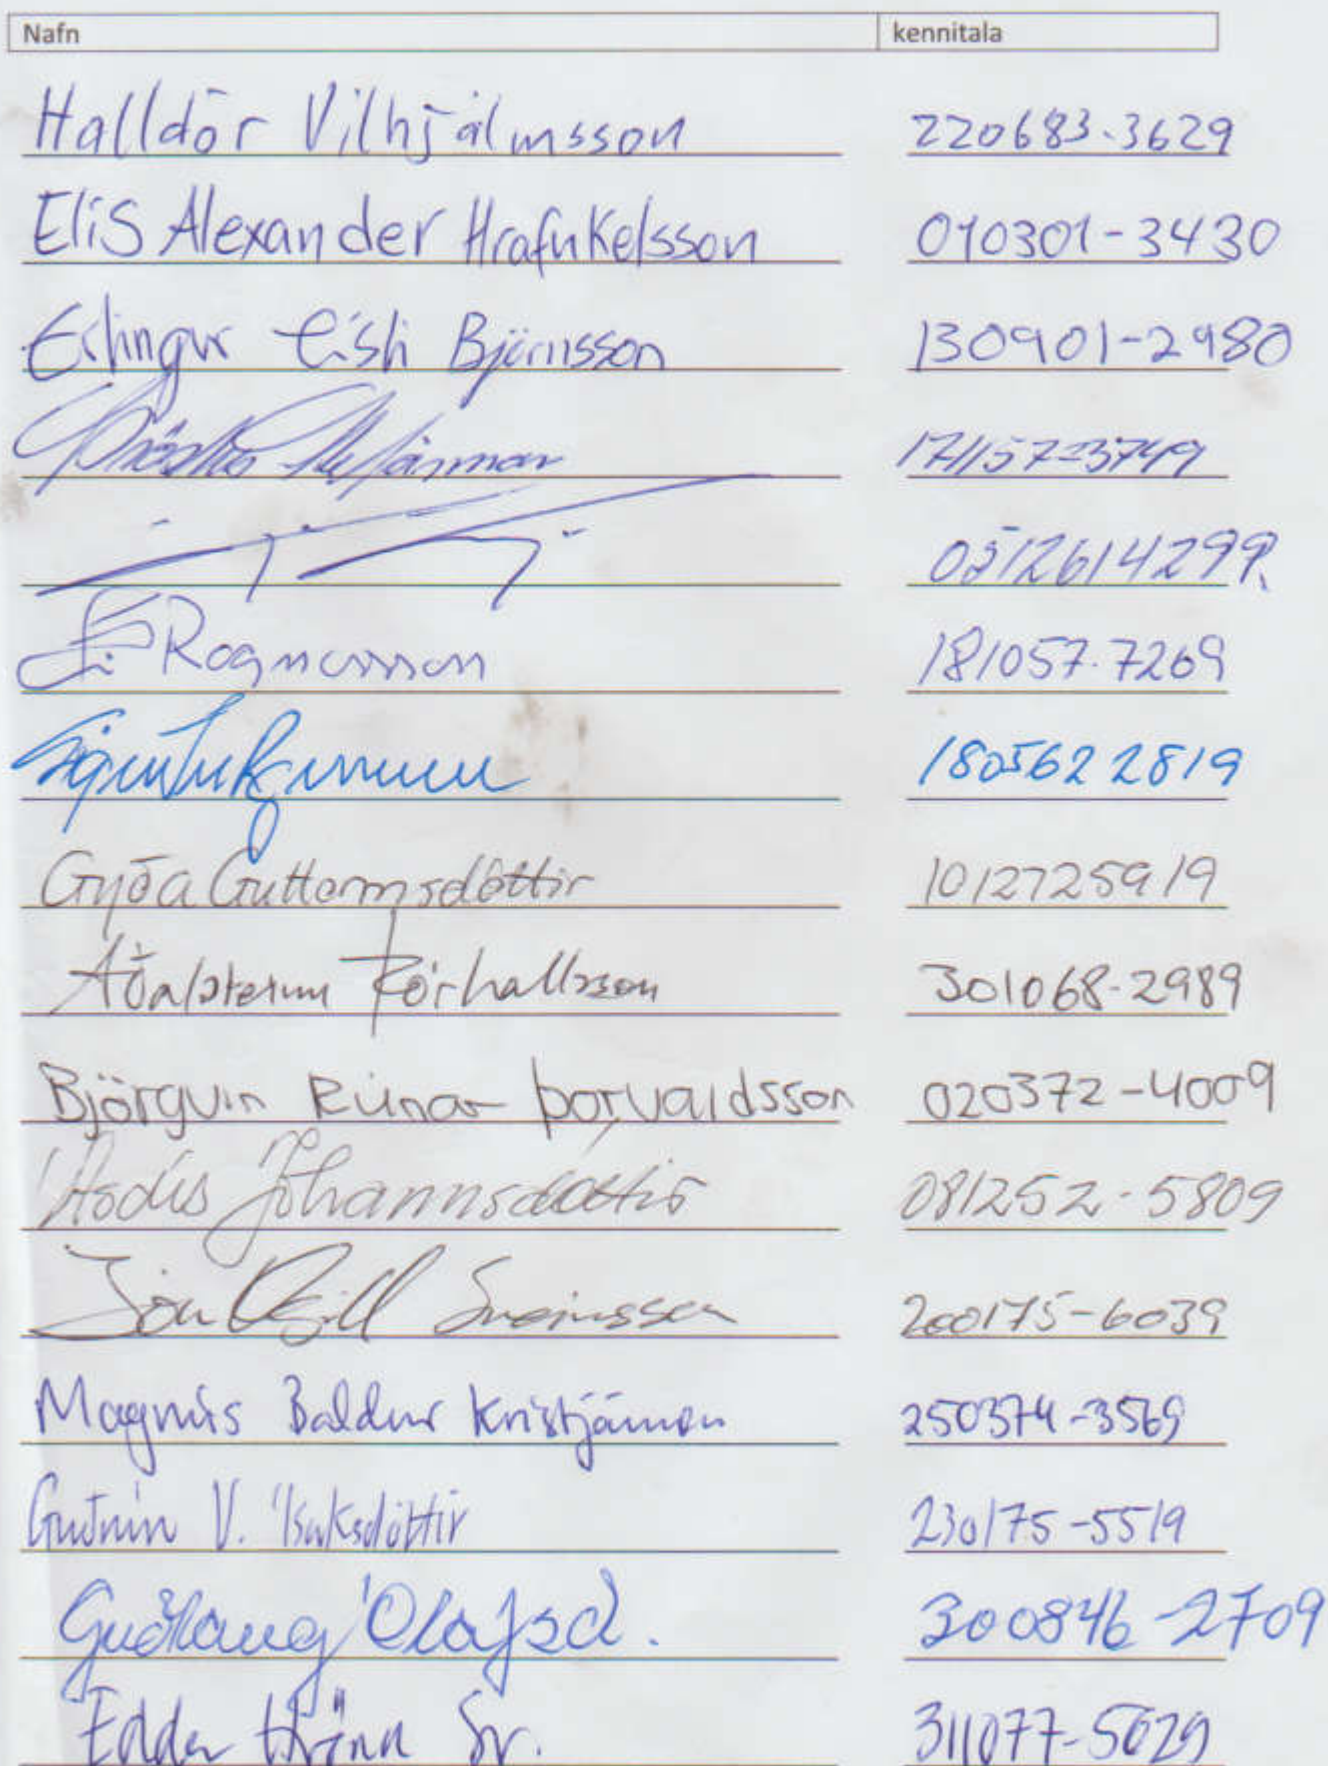 Nafn kennitala
Halldór Vilhjálmsson 220683-3629
Elís Alexander Hrafnkelsson 010301-3430
Erlingur Gísli Björnsson 130901-2980
171157-3749
Ragnarsson 181057-7269
180562 2819
Gyða Guttormsdóttir 1012725919
Aðalsteinn Þórhallsson 301068-2989
Björgvin Rúnar Þorvaldsson 020372-4009
Ásdís Jóhannsdóttir 081252-5809
Jón Egill Sveinsson 200175-6039
Magnús Baldur Kristjánsson 250374-3569
Guðrún V. Ísaksdóttir 230175-5519
Guðlaug Ólafsd. 300846-2709
Edda Hrönn Sv. 311077-5029